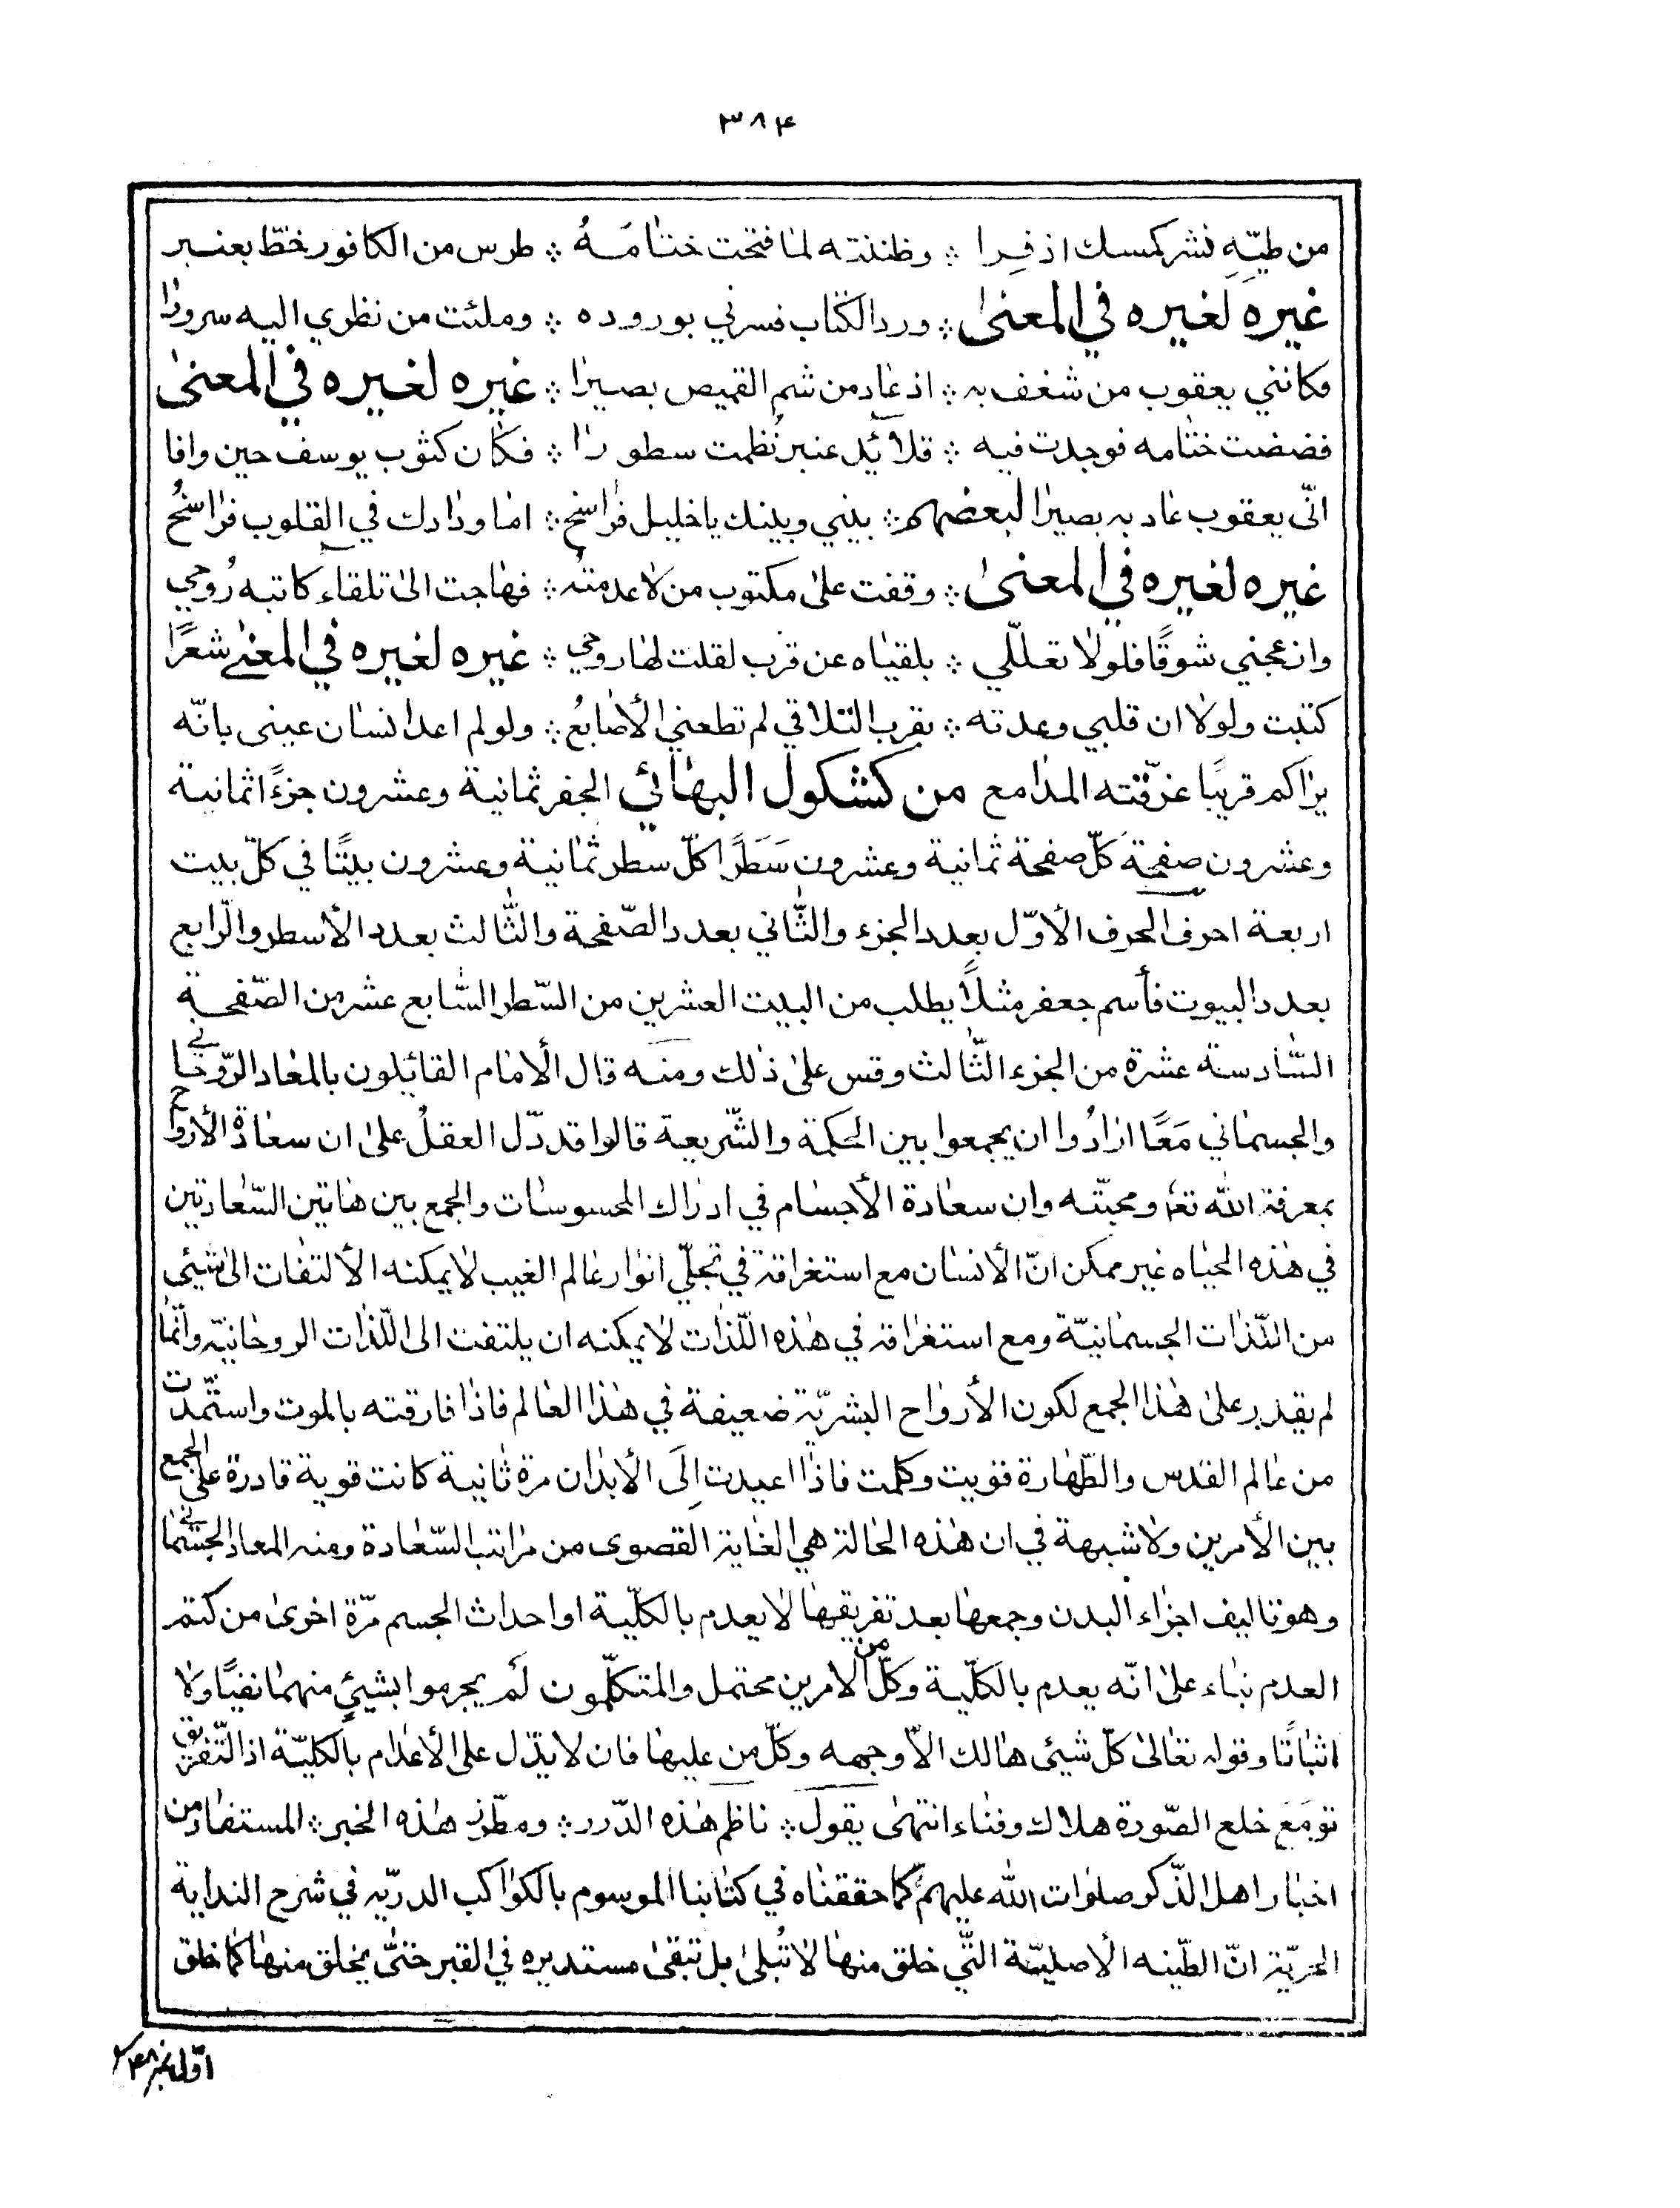 ٣٨۴
من طيّهِ نشر كمسك اذفِرا ؞ وظننته لما فتحت ختامَهُ ؞ طرس من الكافور خطّ بعنبر
غيره لغيره في المعنى ؞ ورد الكتاب فسرني بوروده ؞ وملئت من نظري اليه سرورا
فكانني يعقوب من شغف به ؞ اذ عاد من شم القميص بصيرا ؞ غيره لغيره في المعنى
فضضت ختامه فوجدت فيه ؞ قلائد عنبر نُظمت سطورا ؞ فكان كثوب يوسف حين وافا
اتى يعقوب عاد به بصيرا لبعضهم ؞ بيني وبينك يا خليل فراسخ ؞ اما ودادك في القلوب فراسخُ
غيره لغيره في المعنى ؞ وقفت على مكتوب من لا عدمته ؞ فهاجت الى تلقاء كاتبه رُوحي
وازعجني شوقًا فلولا تعللي ؞ بلقياه عن قرب لقلت لها روحي ؞ غيره لغيره في المعنى شعرًا
كتبت ولولا ان قلبي وعدته ؞ بقرب التلاقي لم تطعني الأصابعُ ؞ ولو لم اعد انسان عيني بانّه
يراكم قريبًا غرّقته المدامع من كشكول البهائي الجفر ثمانية وعشرون جزءًا ثمانية
وعشرون صفحة كلّ صفحة ثمانية وعشرون سَطَرًا كلّ سطر ثمانية وعشرون بيتًا في كلّ بيت
اربعة احرف الحرف الأوّل بعدد الجزء والثّاني بعدد الصّفحة والثّالث بعدد الأسطر والرّابع
بعدد البيوت فأسم جعفر مثلاً يطلب من البيت العشرين من السّطر السّابع عشر من الصّفحة
السّادسة عشرة من الجزء الثّالث وقس على ذلك ومنه قال الأمام القائلون بالمعاد الرّوحاني
والجسماني مَعًا ارادُوا ان يجمعوا بين الحكمة والشّريعة قالوا قد دّل العقلُ على ان سعادة الأرواح
بمعرفة الله تعٰ ومحبّته وان سعادة الأجسام في ادراك المحسوسات والجمع بين هاتين السّعادتين
في هذه الحياه غير ممكن انّ الأنسان مع استغراقه في تجلّي انوار عالم الغيب لا يمكنه الألتفات الى شيئى
من اللّذات الجسمانيّة ومع استغراقه في هذه اللّذات لا يمكنه ان يلتفت الى اللّذات الروحانيّه وانّما
لم يقدر على هذا الجمع لكون الأرواح البشريّة ضعيفة في هذا العالم فاذا فارقته بالموت واستمّدت
من عالم القدس والطّهارة قويت وكلمت فاذا اعيدت اِلَى الأبدان مرة ثانية كانت قوية قادرة على الجمع
بين الأمرين ولا شبهة في ان هذه الحالة هي الغاية القصوى من مراتب السّعادة ومنه المعاد الجسماني
وهو تاليف اجزاء البدن وجمعها بعد تفريقها لا يعدم بالكلّية او احداث الجسم مرّة اخرى من كتم
العدم بناء على انّه يعدم بالكلّية وكلّ من الامرين محتمل والمتكلّمون لَم يجرموا بشيئٍ منهما نفيًا ولا
اثباتًا وقوله تعالى كلّ شيئى هالك الّا وجهه وكلّ من عليها فان لا يدّل على الأعدام بالكليّة اذ التّفريق
تومَع خلع الصّورة هلاك وفناء انتهى يقول ؞ ناظم هذه الدّرر ؞ ومطّرز هذه الخبر ؞ المستفاد من
اخبار اهل الذّكر صلوات الله عليهم كما حققناه في كتابنا الموسوم بالكواكب الدرّيه في شرح الندابة
الحريّة انّ الطّينه الأصليّة الّتي خلق منها لا تُبلى بل تبقى مستديره في القبر حتّى يخلق منها كما خلق